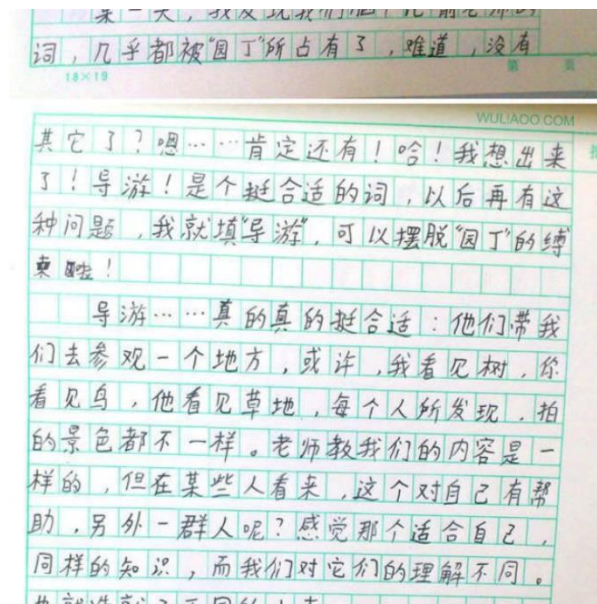 某一天，我发现我们
词，几乎都被“园丁”所占有了，难道，没有
18×19
第 页
WULIAOO.COM
其它了？嗯……肯定还有！哈！我想出来
了！导游！是个挺合适的词，以后再有这
种问题，我就填“导游”，可以摆脱“园丁”的缚
束啦！
导游……真的真的挺合适：他们带我
们去参观一个地方，或许，我看见树，你
看见鸟，他看见草地，每个人所发现，拍
的景色都不一样。老师教我们的内容是一
样的，但在某些人看来，这个对自己有帮
助，另外一群人呢？感觉那个适合自己，
同样的知识，而我们对它们的理解不同。